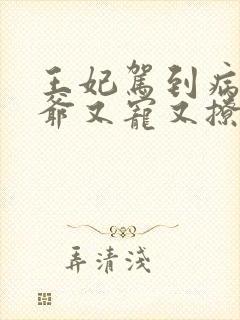 王妃駕到病
爺又寵又撩
弄清淺